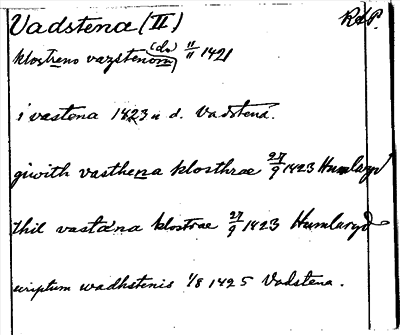 Vadstena (II) RAP.
klostreno vazstenom (do) 11/11 1421
i vastena 1423 u d. Vadstena.
giwith vasthena klosthrae 27/9 1423 Humlaryd
thil vastana klostrae 27/9 1423 Humlaryd
scriptum wadhstenis 1/8 1425 Vadstena.